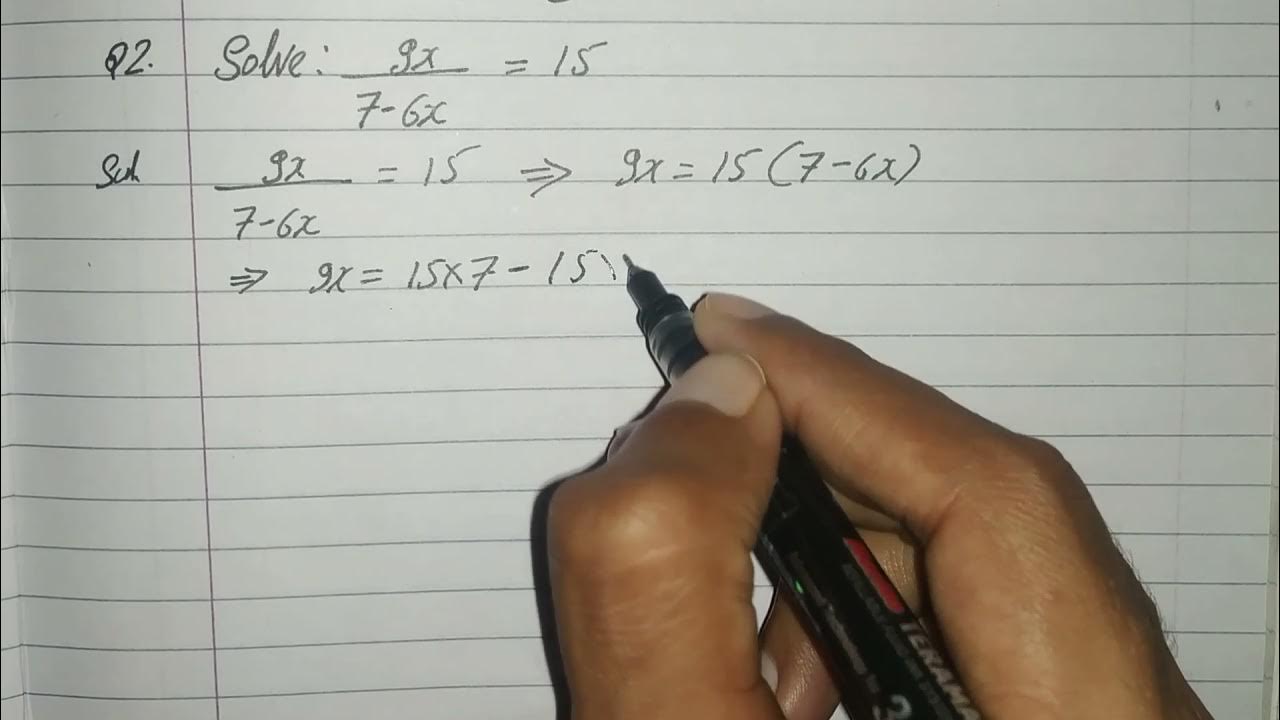 Q2. Solve: 9x / 7-6x = 15
Sol 9x / 7-6x = 15 ⇒ 9x = 15 (7-6x)
⇒ 9x = 15×7 - 15